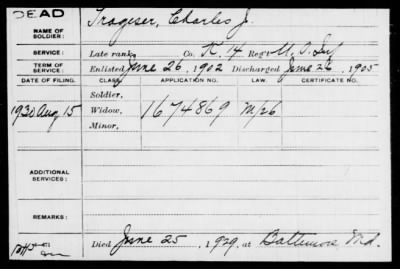 DEAD
NAME OF SOLDIER: Tragiser, Charles J.
SERVICE: Late rank, Co. K, 14 Reg't U.S. Inf
TERM OF SERVICE: Enlisted June 26, 1902 Discharged June 26, 1905
DATE OF FILING. CLASS. APPLICATION NO. LAW. CERTIFICATE NO.
Soldier,
1930 Aug 15 Widow, 1674869
Minor,
ADDITIONAL SERVICES:
REMARKS:
Died June 25, 1929, at Baltimore, Md.